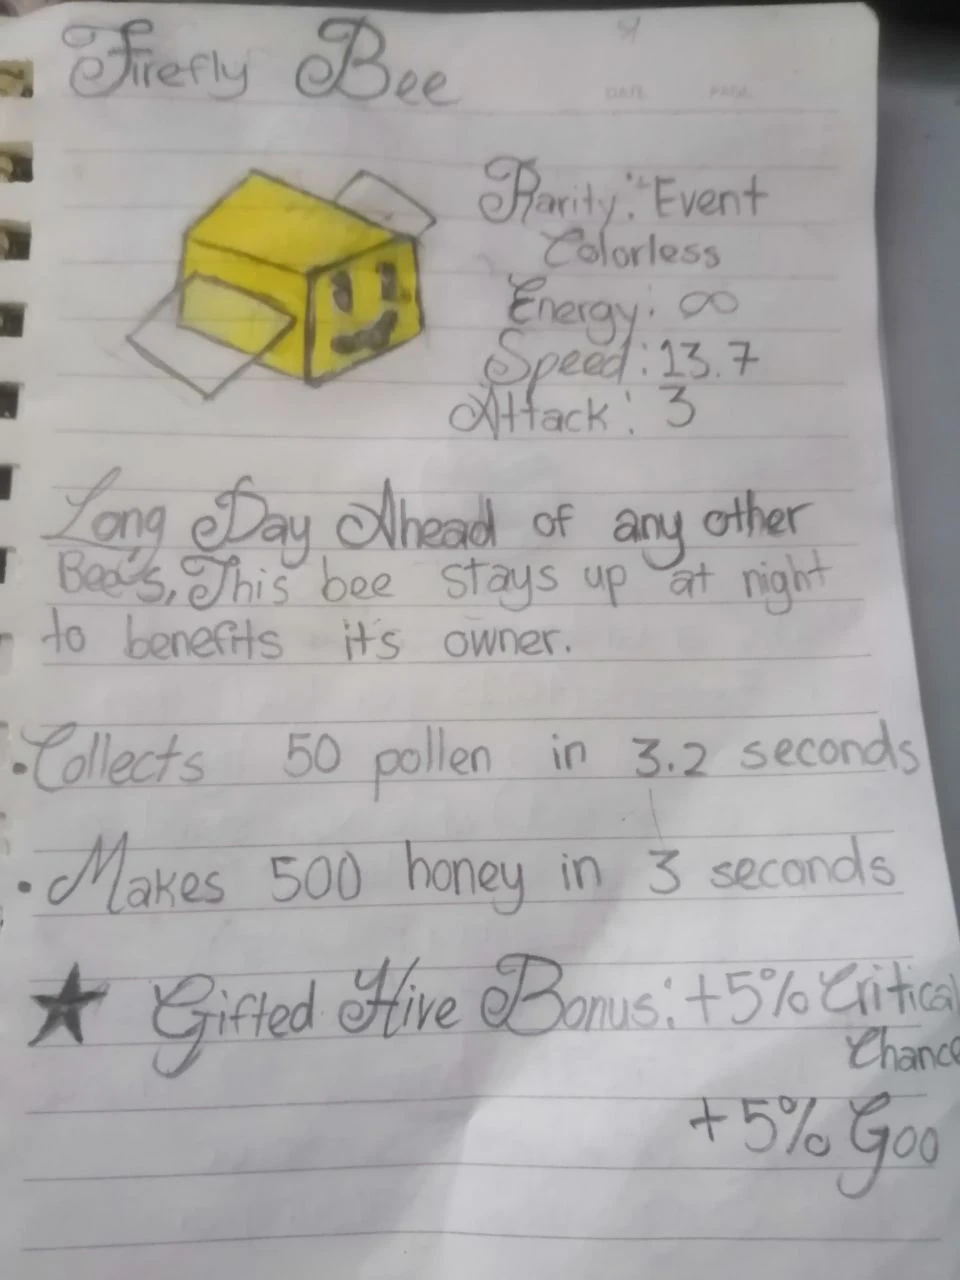 Firefly Bee
DATE PAGE
Rarity: Event
Colorless
Energy: ∞
Speed: 13.7
Attack: 3
Long Day Ahead of any other
Bee's, This bee stays up at night
to benefits it's owner.
• Collects 50 pollen in 3.2 seconds
• Makes 500 honey in 3 seconds
★ Gifted Hive Bonus: +5% Critical
Chance
+5% Goo